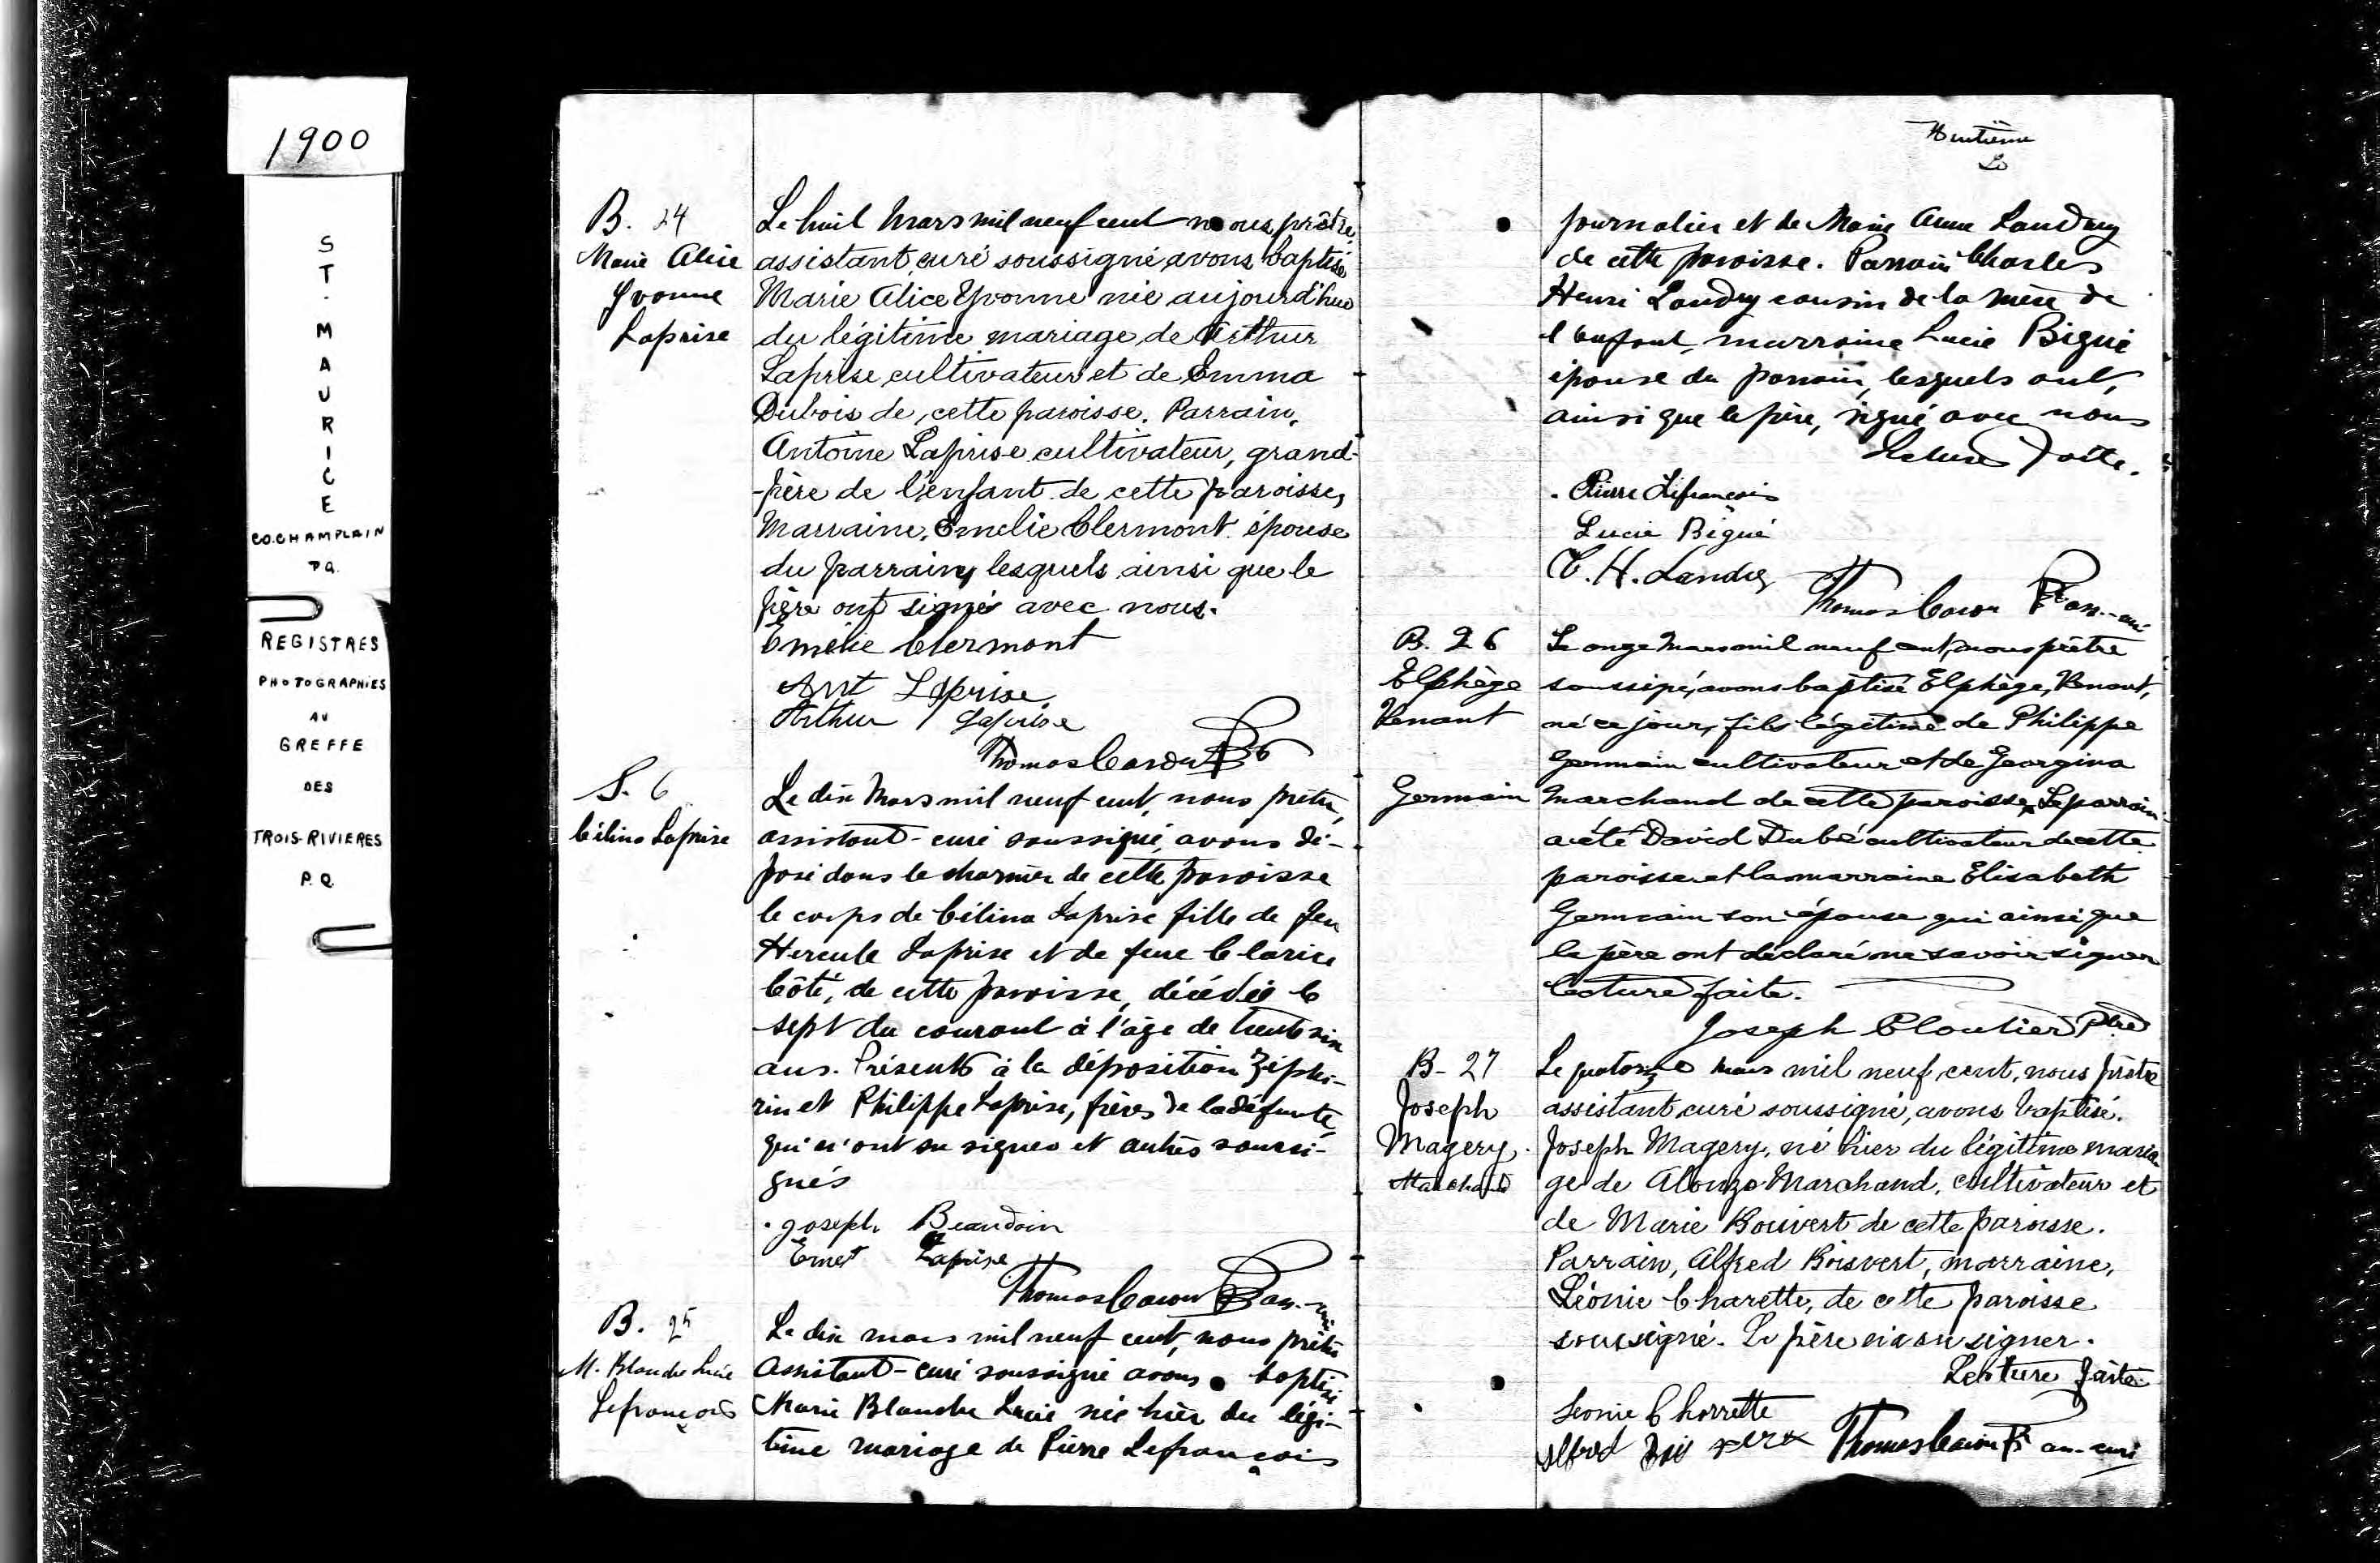 1900
ST. MAURICE
CO. CHAMPLAIN
P.Q.
REGISTRES
PHOTOGRAPHIÉS
AU
GREFFE
DES
TROIS-RIVIERES
P.Q.
B. 24
Marie Alice
Yvonne
Laprise
Le huit Mars mil neuf cent nous prêtre,
assistant curé soussigné avons baptisé
Marie Alice Yvonne née aujourd'hui
du légitime mariage de Arthur
Laprise cultivateur et de Emma
Dubois de cette paroisse. Parrain,
Antoine Laprise cultivateur, grand-
-père de l'enfant de cette paroisse,
Marraine, Emelie Clermont épouse
du parrain, lesquels ainsi que le
père ont signés avec nous.
Emelie Clermont
Ant Laprise
Arthur Laprise
Thomas Caron
S. 6
Célina Laprise
Le dix Mars mil neuf cent, nous prêtre,
assistant-curé soussigné, avons dé-
posé dans le charnier de cette paroisse
le corps de Célina Laprise fille de feu
Hercule Laprise et de feue Clarice
Côté, de cette paroisse, décédée le
sept du courant à l'âge de trente six
ans. Présents à la déposition Zéphi-
rin et Philippe Laprise, frères de la défunte,
qui n'ont su signer et autres soussi-
gnés
Joseph Beaudoin
Ernest Laprise
Thomas Caron Ptre ass.-curé
B. 25
M. Blanche Lucie
Lefrançois
Le dix mars mil neuf cent, nous prêtre
assistant-curé soussigné avons baptisé
Marie Blanche Lucie née hier du légi-
time mariage de Pierre Lefrançois
Huitième
journalier et de Marie Anne Landry
de cette paroisse. Parrain Charles
Henri Landry cousin de la mère de
l'enfant, marraine Lucie Bigué
épouse du parrain, lesquels ont,
ainsi que le père, signé avec nous
Lecture faite.
Pierre Lifrançois
Lucie Bigué
C. H. Landry
Thomas Caron Ptre ass.-curé
B. 26
Elphège
Venant
Germain
Le onze Mars mil neuf cent, nous prêtre
soussigné, avons baptisé Elphège, Venant,
né ce jour, fils légitime de Philippe
Germain cultivateur et de Georgina
Marchand de cette paroisse. Le parrain
a été David Dubé cultivateur de cette
paroisse et la marraine Elisabeth
Germain son épouse qui ainsi que
le père ont déclaré ne savoir signer
lecture faite.
Joseph Cloutier Ptre
B-27
Joseph
Magery
Marchand
Le quatorze mars mil neuf cent, nous prêtre
assistant curé soussigné, avons baptisé.
Joseph Magery, né hier du légitime maria-
ge de Alonzo Marchand, cultivateur et
de Marie Boisvert de cette paroisse.
Parrain, Alfred Boisvert, marraine,
Léonie Charette, de cette paroisse
soussigné. Le père n'a su signer.
Lecture faite
Leonie Chorrette
Alfred
Thomas Caron Ptre ass-curé